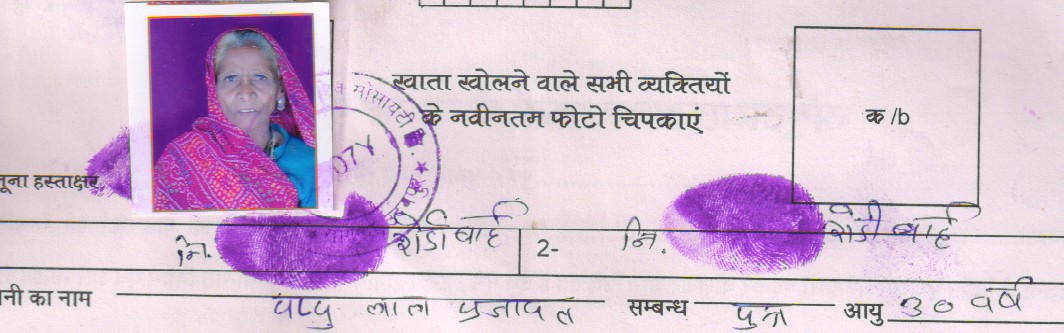 खाता खोलने वाले सभी व्यक्तियों
के नवीनतम फोटो चिपकाएं
क /b
सोसायटी
074
नूना हस्ताक्षर
नि. रोडी बाई 2- नि. रोडी बाई
नी का नाम पप्पु लाल प्रजापत सम्बन्ध पुत्र आयु 30 वर्ष